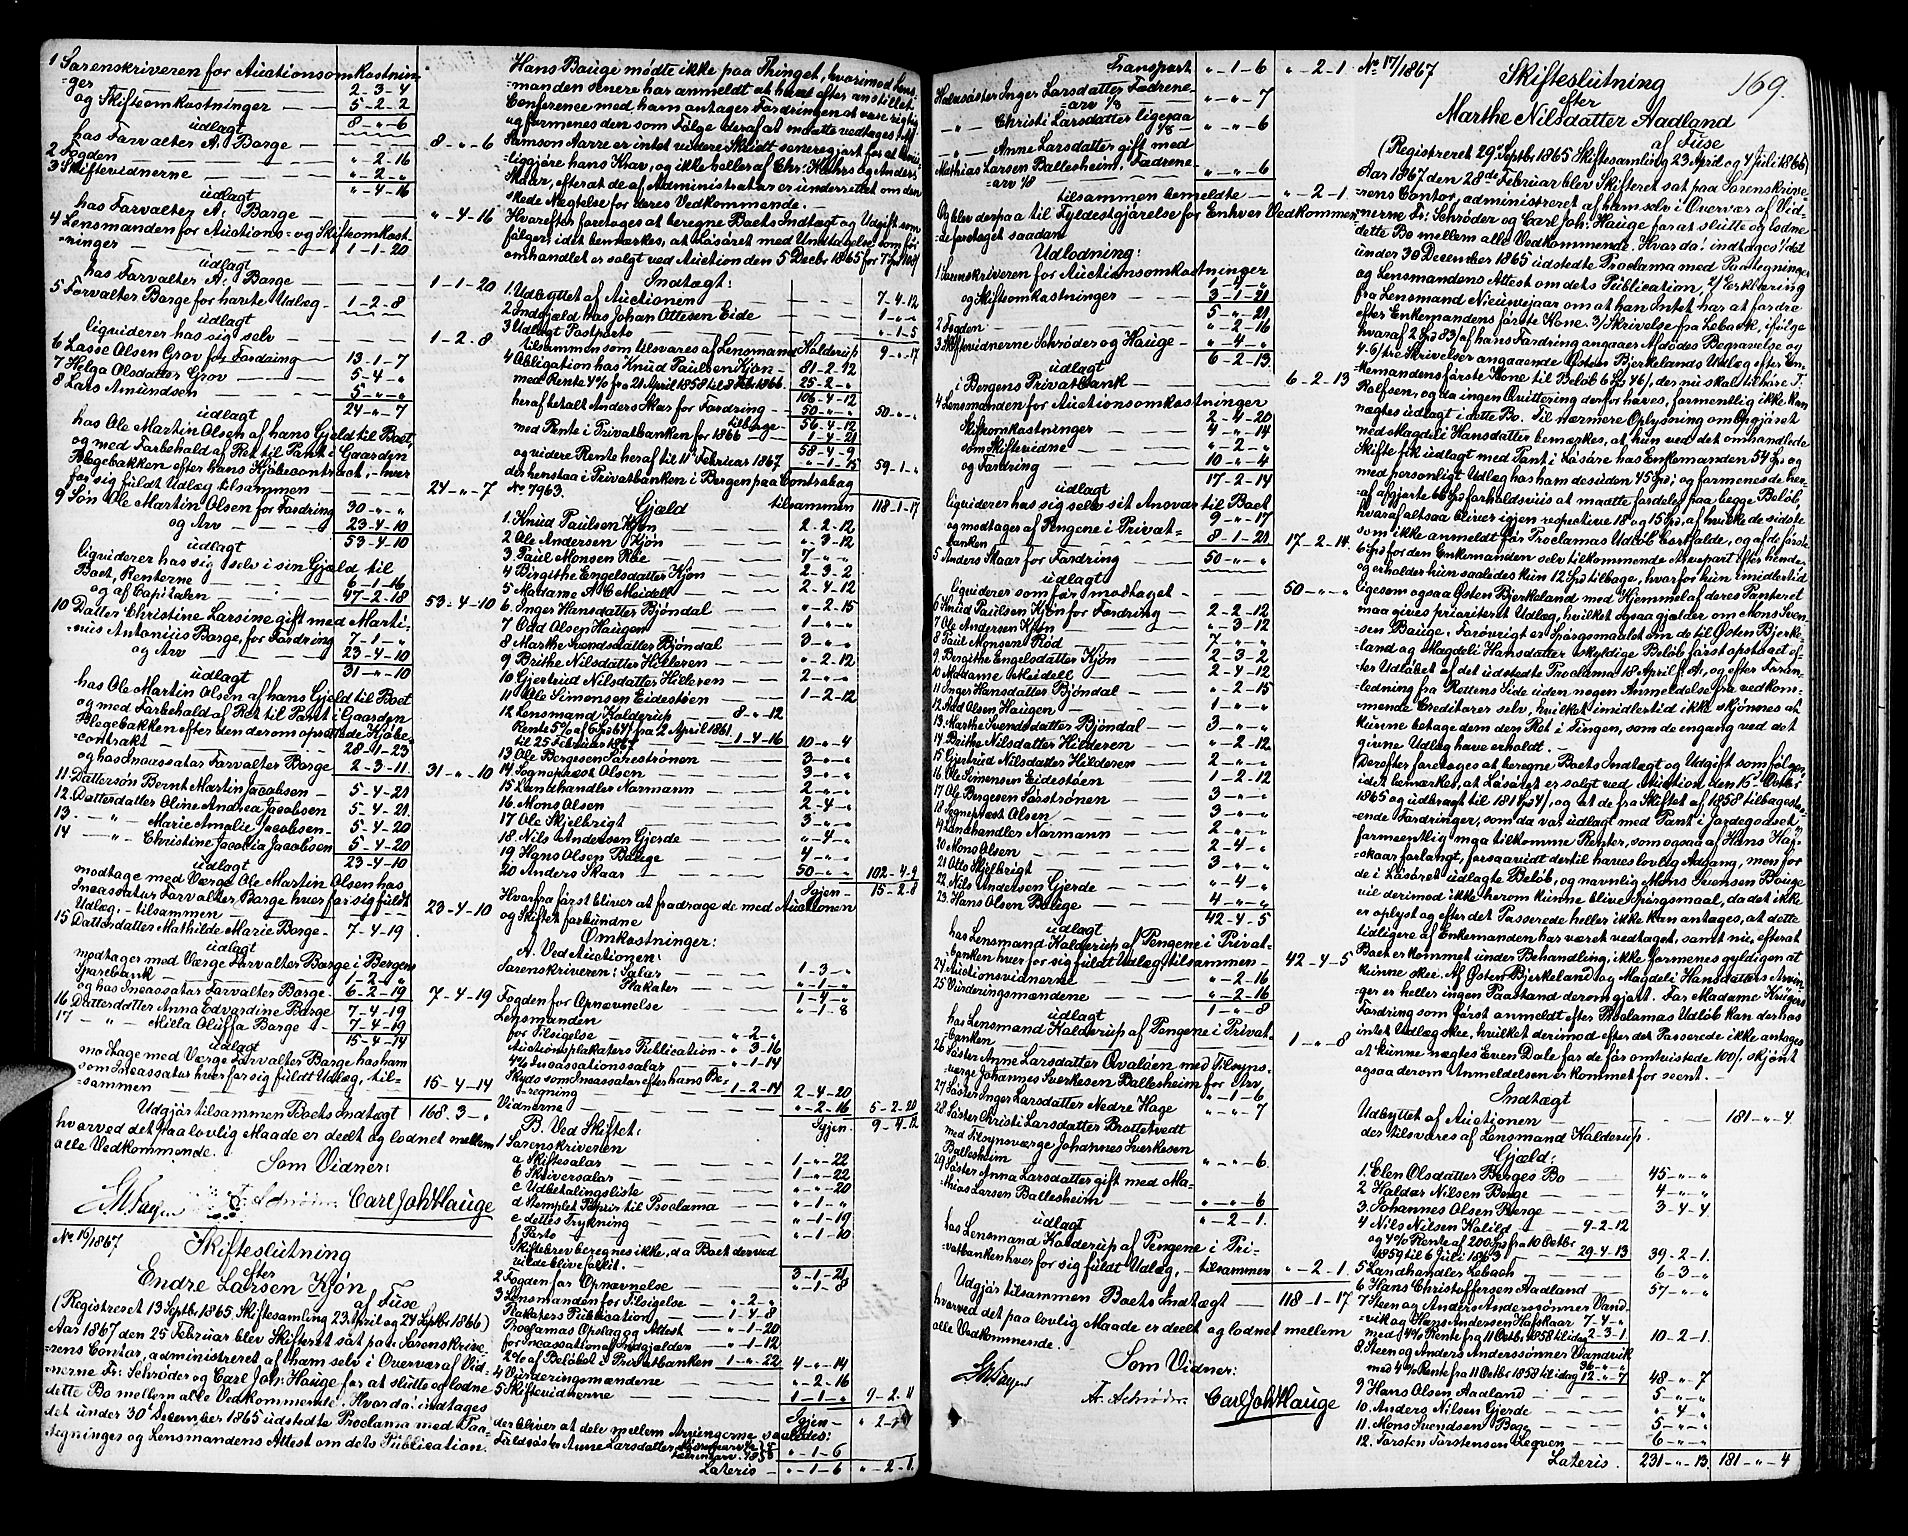 1 Sorenskriveren for Auctionsomkostnin-
ger — 2-3-4
og Skifteomkostninger — 5-2-2
udlagt 8-"-6
hos Forvalter A. Borge — 8-"-6
2 Fogden — "-2-16
3 Skiftevidnerne — "-2-"
udlagt "-4-16
hos Forvalter A. Borge — "-4-16
4 Lensmanden for Auctions- og Skifteomkost-
ninger — 1-1-20
udlagt
hos Forvalter A. Borge — 1-1-20
5 Forvalter Borge for havte Udlæg — 1-2-8
udlagt
liqviderer hos sig selv — 1-2-8
6 Lasse Olsen Grov for Fordring — 13-1-7
7 Helga Olsdatter Grov — 5-4-"
8 Lars Amundsen — 5-"-"
udlagt 24-"-7
hos Ole Martin Olsen af hans Gjæld til Boet,
og med Forbehold af Ret til Pant i Gaarden
Blegebakken efter hans Kjøbecontract, hver
for sig fuldt Udlæg tilsammen — 24-"-7
9 Søn Ole Martin Olsen for Fordring 30-"-"
og Arv — 23-4-10
udlagt 53-4-10
liqviderer hos sig selv i sin Gjæld til
Boet, Renterne — 6-1-16
og af Capitalen — 47-2-18
53-4-10
10 Datter Christine Larsine gift med Marti-
nus Antonius Borge, for Fordring 7-1-"
og Arv — 23-4-10
udlagt 31-"-10
hos Ole Martin Olsen af hans Gjæld til Boet
og med Forbehold af Ret til Pant i Gaarden
Blegebakken efter den derom oprettede Kjøbe-
contract — 28-1-23
og hos Incassator Forvalter Borge 2-3-11
31-"-10
11 Dattersøn Bernt Martin Jacobsen — 5-4-21
12 Datterdatter Oline Andrea Jacobsen 5-4-21
13 — " — Marie Amalie Jacobsen — 5-4-20
14 — " — Christine Jacobia Jacobsen 5-4-20
udlagt 23-4-10
modtage med Værge Ole Martin Olsen hos
Incassator Forvalter Borge hver for sig fuldt
Udlæg, tilsammen — 23-4-10
15 Datterdatter Mathilde Marie Borge — 7-4-19
udlagt
modtager med Værge Forvalter Borge i Bergens
Sparebank — 1-2-"
og hos Incassator Forvalter Borge — 6-2-19
7-4-19
16 Datterdatter Anna Edvardine Borge 7-4-19
17 — " — Milla Oluffa Borge — 7-4-19
udlagt 15-4-14
modtage med Værge Forvalter Borge hos ham
som Incassator hver for sig fuldt Udlæg, til-
sammen — 15-4-14
Udgjør tilsammen Boets Indtægt 168-3-"
hvorved det paa lovlig Maade er deelt og lodnet mellem
alle Vedkommende.
Som Vidner:
Carl Joh Hauge
No 16/1867
Skifteslutning
efter
Endre Larsen Kjøn
af Fuse
(Registreret 13 Septbr 1865. Skiftesamling 23 April og 24 Septbr 1866)
Aar 1867 den 25 Februar blev Skifteret sat paa Sorenskrive-
rens Contor, administreret af ham selv i Overvær af Vid-
nerne Fr: Schrøder og Carl Joh: Hauge for at slutte og lodne
dette Bo mellem alle Vedkommende. Hvorda! indtages
det under 30t December 1865 udstedte Proclama med Paa-
tegninger og Lensmandens Attest om dets Publication.
Hans Bauge mødte ikke paa Thinget, hvorimod Lens-
manden senere har anmeldt at have efter anstillet
Conference med ham antager Fordringen at være rigtig
og formenes den som Følge deraf at maatte vedtages.
Samson Aarre er intet videre Skridt senere gjort for at bevis-
liggjøre hans Krav, og ikke heller af Chr: Mohrs og Anders
Skaar, efterat de af Administrator er underrettet om den
skede Nægtelse for deres Vedkommende.
Hvorefter foretoges at beregne Boets Indtægt og Udgift som
følger, idet bemærkes, at Løsøret med Undtagelse som før
omhandlet er solgt ved Auction den 5 Decbr 1865 for
Indtægt:
1. Udbyttet af Auctionen — 7-4-12
2 Indgjæld hos Johan Ottesen Eide — 1-"-"
3 Udlagt Postporto — "-1-5
tilsammen som tilsvares af Lensmand Kalderup 9-"-17
4 Obligation hos Knud Paulsen Kjøn — 81-2-12
med Rente 4% fra 21 April 1858 til 8 Febr 1866 25-2-"
106-4-12
heraf betalt Anders Skar for Fordring — 50-"-" 50-"-"
tilbage 56-4-12
med Rente i Privatbanken for 1866 — 1-4-21
58-4-9
og videre Rente heraf til 11t Februar 1867 "-1-15 59-1-"
der henstaa i Privatbanken i Bergen paa Contrabog
No 7963.
tilsammen 118-1-17
Gjæld
1. Knud Paulsen Kjøn — 2-2-12
2. Ole Andersen Kjøn — "-3-12
3. Paul Monsen Røe — 7-"-"
4 Birgithe Engelsdatter Kjøn — 2-3-2
5. Madame A. C. Meidell — 2-4-12
6. Inger Hansdatter Bjöndal — "-2-15
7 Odd Olsen Haugen — 1-"-"
8 Marthe Svendsdatter Bjöndal — 3-"-"
9 Brithe Nilsdatter Hilleren — "-2-12
10 Gjertrud Nilsdatter Hilleren — 2-"-"
11 Ole Simonsen Eidestøen — 1-2-12
12 Lensmand Kalderup — 8-"-12
Rente 5% af 6 Spd 64/ fra 2 April 1861
til 25 Februar 1867 — 1-4-16 10-"-4
13 Ole Bergesen Söreströnen — 3-"-"
14. Sogneprest Olsen — 3-"-"
15 Landhandler Normann — 2-"-"
16. Mons Olsen — 2-4-"
17 Ole Skjelbrigt — 3-"-"
18. Nils Andersen Gjerde — "-4-"
19 Hans Olsen Bauge — 4-"-"
20 Anders Skaar — 50-"-" 102-4-9
Igjen — 15-2-8
Hvorfra først bliver at fradrage de med Auctionen
og Skiftet forbundne
Omkostninger:
A. Ved Auctionen:
Sorenskriveren: Salar — 1-3-"
Plakater — "-1-"
1-4-"
Fogden for Opnævnelse — "-1-8
Lensmanden
for Tilsigelse — "-2-"
Auctionsplakaters Publication — "-3-16
4% Incassationssalar — "-1-14
Skyds som Incassator efter hans Be-
regning — 1-2-14 2-4-20
Vidnerne — "-2-16 5-2-20
Igjen — 9-4-12
B. Ved Skiftet:
1 Sorenskriveren
a Skiftesalar — 1-"-22
b Skriversalar — 1-"-22
c Udbetalingsliste — "-"-20
d Stemplet Papir til Proclama — "-1-"
e dettes Trykning — "-1-19
f Porto — "-1-10
Skiftebrev beregnes ikke, da Boet derved
vilde blive fallit.
3-1-21
2 Fogden for Opnævnelse — "-1-8
3 Lensmanden for Tilsigelse — "-2-"
Plakaters Publication 1-4-8
Proclamas Opslag og Attest "-1-20
for Incassation af Indgjælden "-1-12
2% af Beløbet i Privatbanken 1-"-22 4-"-14
4 Vurderingsmændene — "-2-16
5 Skiftevidnerne — 1-1-" 9-2-11
Igjen — "-2-1
der bliver at dele mellem Arvingerne saaledes:
Fuldsøster Anne Larsdatter, "-1-6
Lateris — "-1-6 "-2-1.
169.
Transport "-1-6 "-2-1.
Halvsøster Inger Larsdatter Fædrene-
arv 1/8 — "-"-7
— " — Christi Larsdatter ligesaa
1/8 — "-"-6
— " — Anne Larsdatter gift med
Mathias Larsen Ballesheim, Fædrene-
arv 1/8 — "-"-6
tilsammen bemeldte — "-2-1.
Og blev derpaa til Fyldestgjørelse for Enhver Vedkommen-
de foretaget saadan
Udlodning:
1 Sorenskriveren for Auctionsomkostninger
1-4-"
og Skifteomkostninger — 3-1-21
5-"-21
2 Fogden — "-2-16
3 Skiftevidnerne Schrøder og Hauge — "-4-"
udlagt 6-2-13
i Bergens Privatbank — 6-2-13
4 Lensmanden for Auctionsomkostninger
2-4-20
Skifteomkostninger — 4-"-14
som Skiftevidne — "-2-"
og Fordring — 10-"-4
udlagt 17-2-14
liqviderer hos sig selv sit Ansvar til Boet
9-"-17
og modtager af Pengene i Privat-
banken — 8-1-21
17-2-14
5 Anders Skaar for Fordring — 50-"-"
udlagt
liqviderer som før modtaget — 50-"-"
6 Knud Paulsen Kjøn for Fordring — 2-2-12
7 Ole Andersen Kjøn — "-3-12
8 Paul Monsen Röd — 7-"-"
9. Bergithe Engelsdatter Kjøn — 2-3-2
10 Madame Meidell — 2-4-12
11 Inger Hansdatter Bjöndal — "-2-15
12 Odd Olsen Haugen — 1-"-"
13. Marthe Svendsdatter Bjöndal — 3-"-"
14 Brithe Nilsdatter Hilderen — "-2-12
15 Gjertrud Nilsdatter Hilderen — 2-"-"
16 Ole Simensen Eidestöen — 1-2-12
17 Ole Bergesen Sörströnen — 3-"-"
18 Sogneprest Olsen — 3-"-"
19 Landhandler Normann — 2-"-"
20 Mons Olsen — 2-4-"
21 Otto Skjelbrigt — 3-"-"
22. Nils Andersen Gjerde — "-4-"
23. Hans Olsen Bauge — 4-"-"
udlagt 42-4-5
hos Lensmand Kalderup af Pengene i Privat-
banken hver for sig fuldt Udlæg, tilsammen — 42-4-5
24 Auctionsvidnerne — "-2-16
25 Vurderingsmændene — "-2-16
udlagt 1-"-8
hos Lensmand Kalderup af Pengene i Privat-
banken — 1-"-8
26 Søster Anne Larsdatter Qvaløen med Tilsyns-
værge Johannes Sverkesen Ballesheim for Arv
"-1-6
27 Søster Inger Larsdatter Nedre Hage "-"-7
28 Søster Christi Larsdatter Brattetvedt
med Tilsynsværge Johannes Sverkesen
Ballesheim — "-"-6.
29 Søster Anna Larsdatter gift med Ma-
thias Larsen Ballesheim — "-"-6
udlagt "-2-1.
hos Lensmand Kalderup af Pengene i Pri-
vatbanken hver for sig fuldt Udlæg, — tilsammen "-2-1.
Udgjør tilsammen Boets Indtægt — 118-1-17
hvorved det paa lovlig Maade er deelt og lodnet mellem
alle Vedkommende.
Som Vidner:
Fr. Schrøder. Carl Joh Hauge
No 17/1867
Skifteslutning
efter
Marthe Nilsdatter Aadland
af Fuse
(Registreret 29de Septbr 1865 Skiftesamling 23 April og 4 Juli 1866)
Aar 1867 den 28de Februar blev Skifteret sat paa Sorenskrive-
rens Contor, administreret af ham selv i Overvær af Vid-
nerne Fr: Schrøder og Carl Joh: Hauge for at slutte og lodne
dette Bo mellem alle Vedkommende. Hvorda! indtages 1/ det
under 30 December 1865 udstedte Proclama med Paategninger
og Lensmandens Attest om dets Publication, 2/ Erklæring
fra Lensmand Nieuwejaar om at han Intet har at fordre
efter Enkemandens første Kone 3/ Skrivelse fra Lebach, ifølge
hvoraf 2 Spd 83/ af hans Fordring angaaer Afdødes Begravelse og
4-6/ tre Skrivelser angaaende Østen Bjerkelands Udlæg efter En-
kemandens første Kone til Beløb 6 Spd 46/, der nu skal tilhøre T.
Rolfsen, og da ingen Qvittering derfor haves, formentlig ikke kan
nægtes udlagt i dette Bo. Til nærmere Oplysning om Opgjøret
med Magdeli Hansdatter bemærkes, at hun ved det omhandlede
Skifte fik udlagt med Pant i Løsøre hos Enkemanden 54 Spd og
med personligt Udlæg hos ham desuden 45 Spd; og formenes de her-
af afgjorte 66 Spd forholdsviis at maatte fordeles paa begge Beløb,
hvoraf altsaa bliver igjen respective 18 og 15 Spd, af hvilke de sidste
som ikke anmeldt før Proclamas Udløb bortfalde, og af de første
6 Spd for den Enkemanden selv tilkommende Arvepart efter hende,
og erholder hun saaledes kun 12 Spd tilbage, hvorfor hun imidlertid
ligesom ogsaa Østen Bjerkeland med Hjemmel af deres Panteret
maa gives prioriteret Udlæg, hvilket ogsaa gjælder om Mons Sven-
sen Bauge. Forøvrigt er Spørgsmaalet om de til Østen Bjerke-
land og Magdeli Hansdatter skyldige Beløb først opstaaet ef-
ter Udløbet af det udstedte Proclama 18 April f. A., og efter Foran-
ledning fra Rettens Side uden nogen Anmeldelse fra vedkom-
mende Creditorer selv, hvilket imidlertid ikke skjønnes at
kunne betage dem den Ret i Tingen, som de engang ved det
givne Udlæg have erholdt.
Derefter foretoges at beregne Boets Indtægt og Udgift som følger,
idet bemærkes, at Løsøret er solgt ved Auction den 16 Octbr
1865 og udbragt til 181 Spd 4/, og at de fra Skiftet af 1858 tilbagestaa-
ende Fordringer, som da var udlagt med Pant i Jordegodset,
formeentlig maa tilkomme Renter, som ogsaa af Hans Haf-
skaar forlangt, forsaavidt dertil haves lovlig Adgang, men for
de i Løsøret udlagte Beløb, og navnlig Mons Svensen Bauge
vil derimod herom kunne blive Spørgsmaal, da det ikke
er oplyst og efter det Passerede heller ikke kan antages, at dette
tidligere af Enkemanden har været vedtaget, samt nu, efterat
Boet er kommet under Behandling, ikke formenes gyldigen at
kunne skee. Af Østen Bjerkeland og Magdeli Hansdatters Arvin-
ger er heller ingen Paastand derom gjort. For Madame Krügers
Fordring som først anmeldt efter Proclamas Udløb kan der hos
intet Udlæg skee, hvilket derimod efter det Passerede ikke antages
at kunne nægtes Even Dale for de før omtvistede 100/. skjønt
ogsaa derom Anmeldelsen er kommet for seent.
Indtægt
Udbyttet af Auctionen — 181-"-4
der tilsvares af Lensmand Kalderup.
Gjæld:
1. Elen Olsdatter Berges Bo — 45-"-"
2 Haldor Nilsen Berge — 4-"-"
3. Johannes Olsen Berge — 3-4-4
4 Nils Nilsen Kalild — 9-2-12
og 4% Rente af 200 Spd fra 10 Octbr
1859 til 6 Juli 1863 — 29-4-13 39-2-1.
5 Landhandler Lebach — 6-3-"
6 Hans Christoffersen Aadland — 57-"-"
7 Steen og Anders Anderssønner Vand-
vik og Hans Andersen Hafskaar 7-4-"
med 4% Rente fra 11 Octbr 1858 til idag 2-3-1. 10-2-1.
8. Steen og Anders Anderssønner Vandvik
36-"-"
med 4% Rente fra 11 Octbr 1858 til idag 12-"-7 48-"-7
9 Hans Olsen Aadland — 5-"-"
10. Anders Nilsen Gjerde — "-4-"
11. Mons Svendsen Boge — 5-"-"
12. Torsten Torstensen Leqven — 6-"-"
Lateris. 231-"-13. 181-"-4